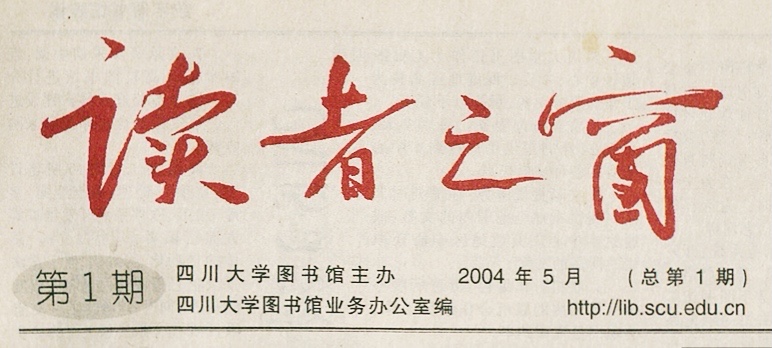 读者之窗
第1期
四川大学图书馆主办 2004年5月 (总第1期)
四川大学图书馆业务办公室编 http://lib.scu.edu.cn